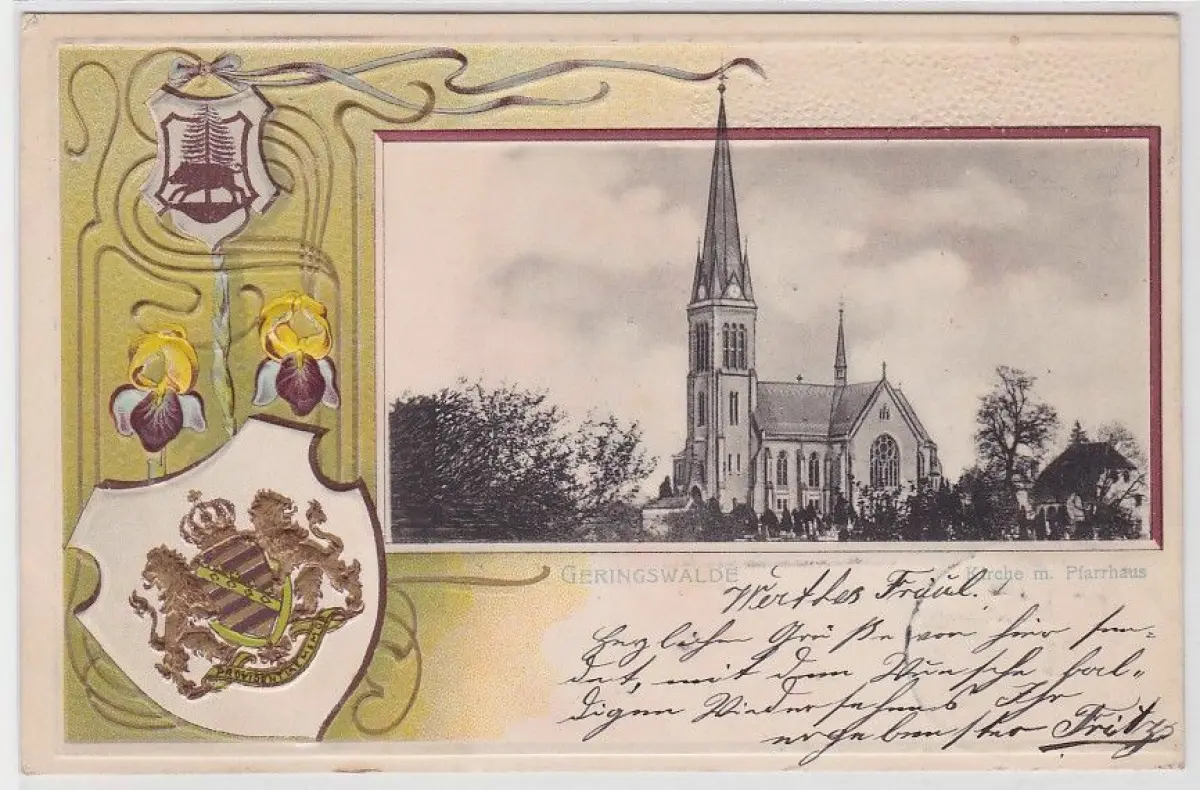 PROVIDENTIAE MEMOR
GERINGSWALDE
Kirche m. Pfarrhaus
Werthes Fräul.!
Herzliche Grüße von hier sen-
det, mit dem Wunsche bal-
digen Wiedersehens Ihr
ergebenster Fritz